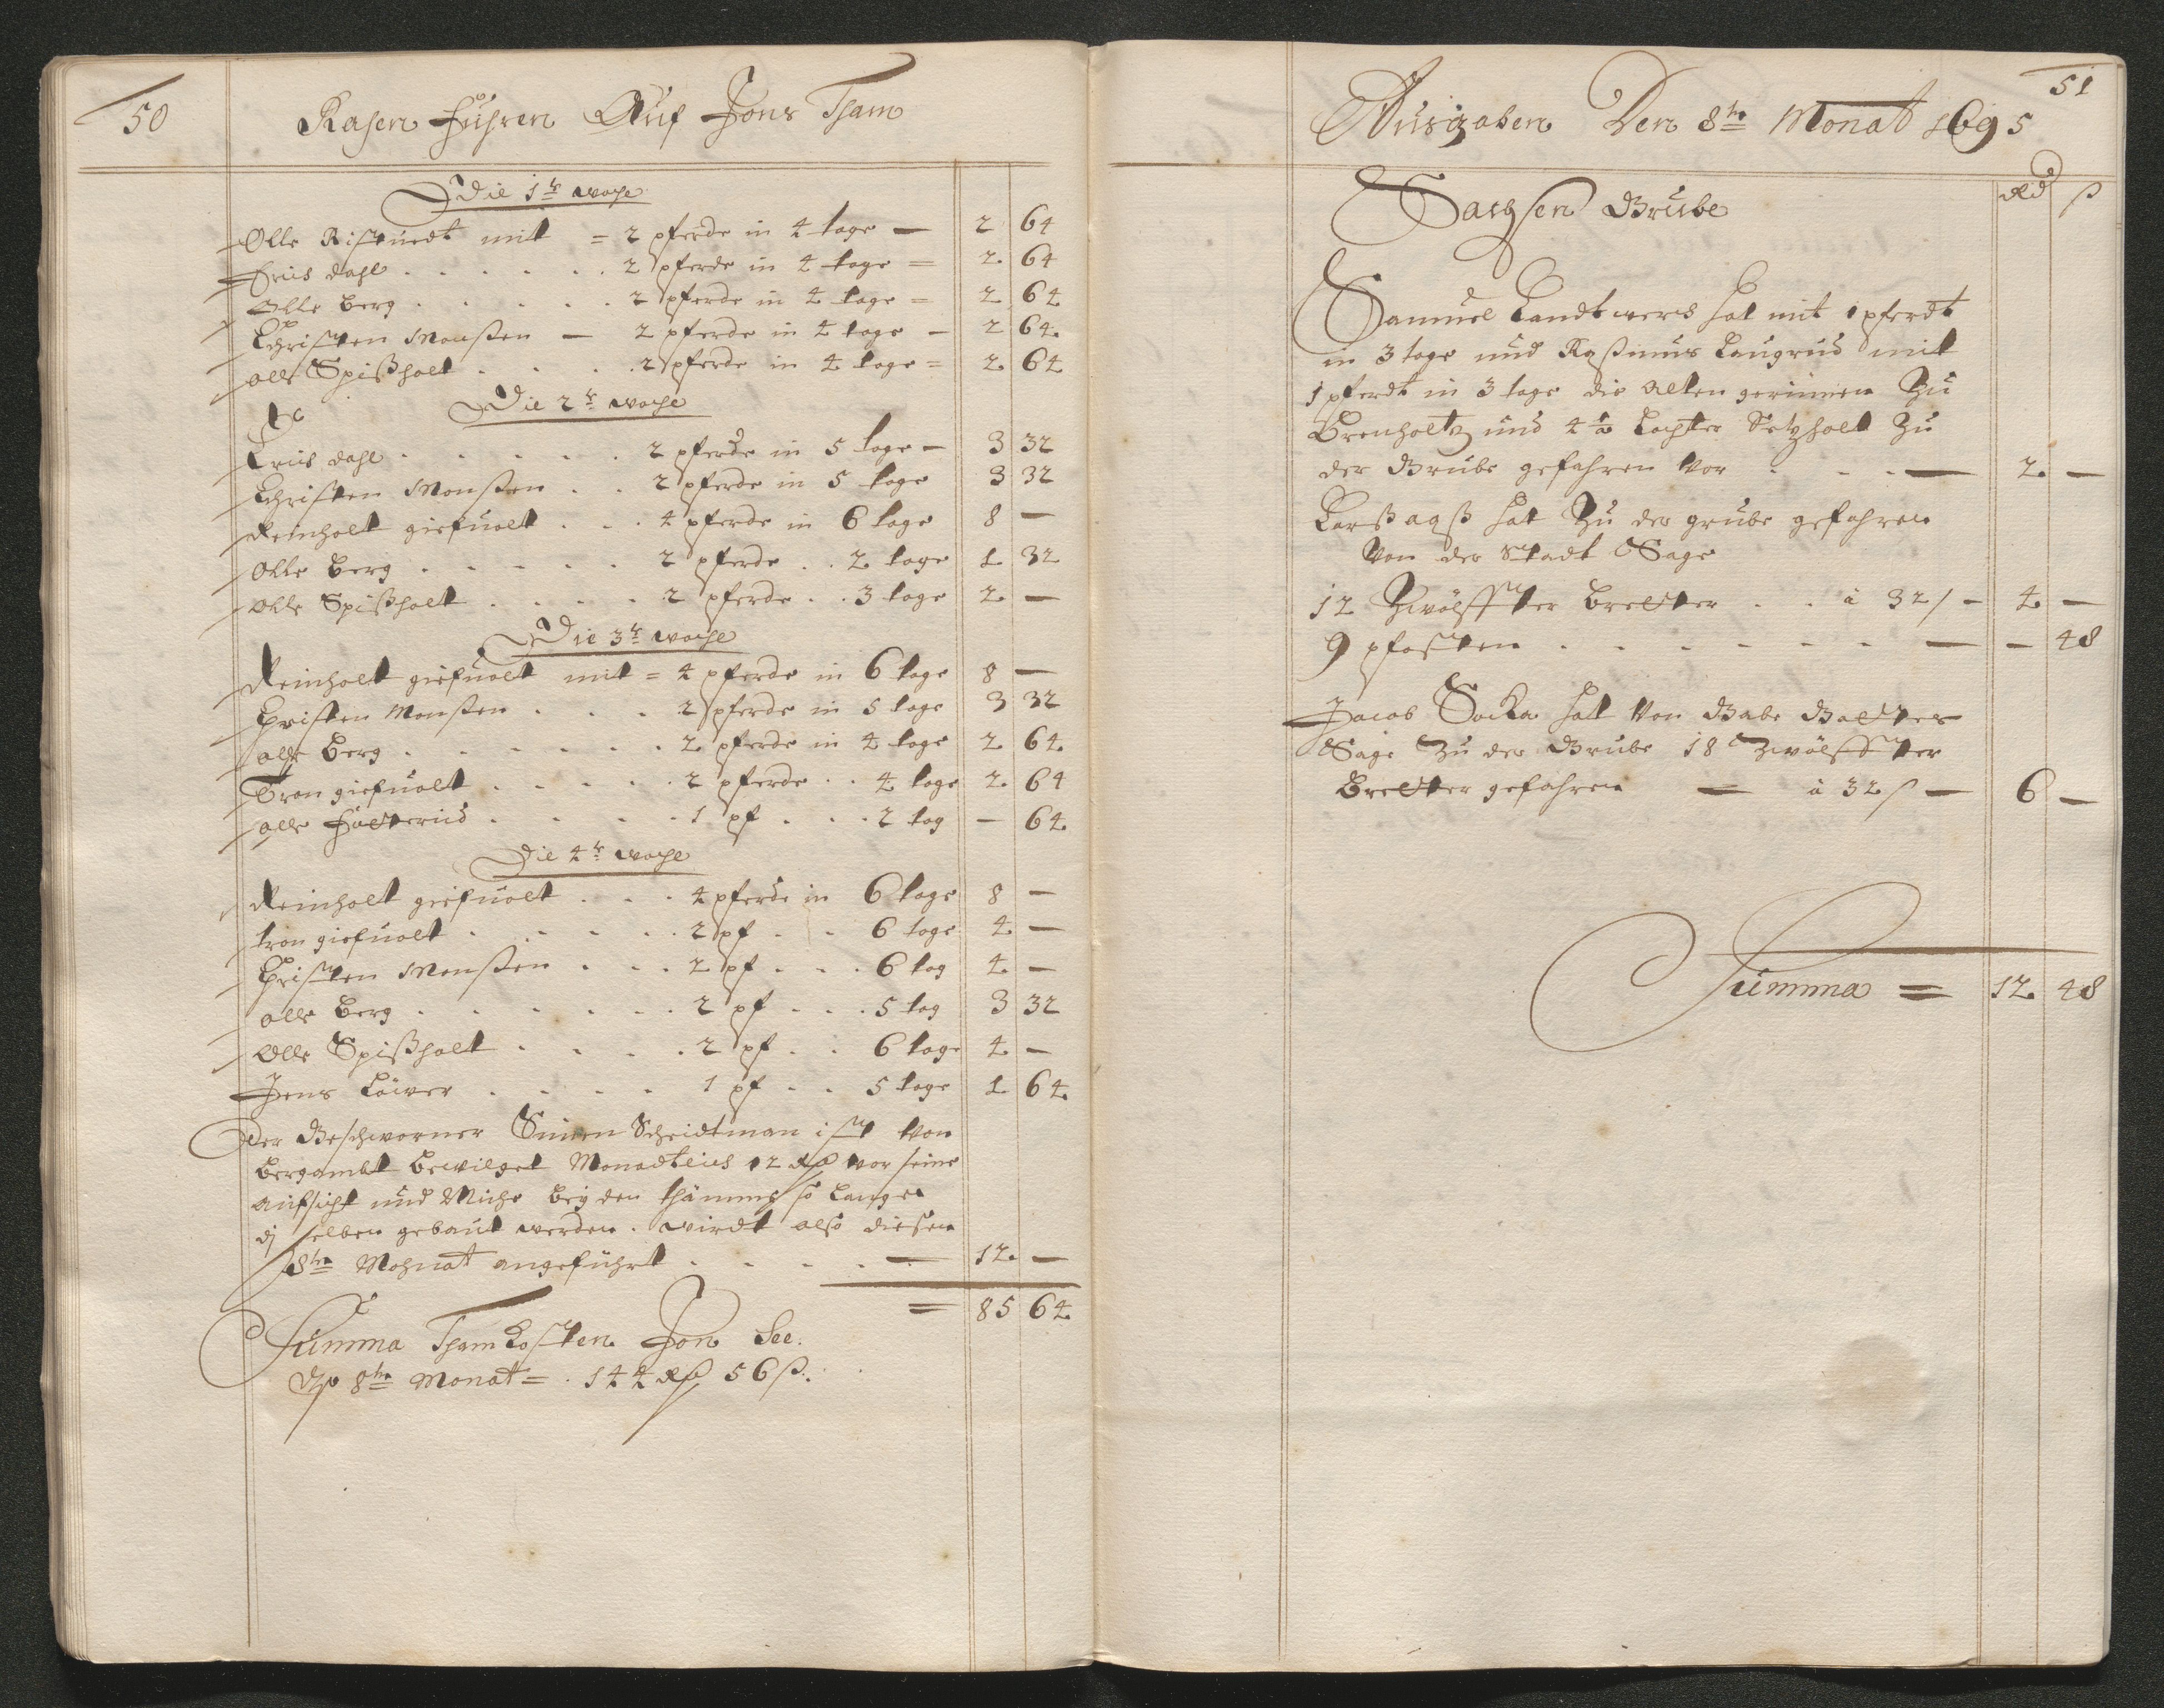 50
Rasen Fuhren Auf Jons Tham
Die 1te woche
Olle Ristuedt mit = 2 pferde in 4 tage — 2 64
Friis dahl . . . . . . 2 pferde in 4 tage = 2. 64
Olle Berg . . . . . 2 pferde in 4 tage = 2 64
Christen Monßen — 2 pferde in 4 tage — 2 64.
olle Spißholt . . . . 2 pferde in 4 tage = 2. 64
Die 2te woche
Friis dahl . . . . . 2 pferde in 5 tage — 3 32
Christen Monßen . . 2 pferde in 5 tage 3 32
Reinholt giefuolt . . . 4 pferde in 6 tage 8 —
Olle Berg . . . . . 2 pferde . . 2 tage 1 32
olle Spißholt . . . . 2 pferde . . 3 tage 2. —
Die 3te woche
Reinholt giefuolt mit = 4 pferde in 6 tage 8 —
Christen Monßen . . . . 2 pferde in 5 tage 3 32
olle Berg . . . . . . . 2 pferde in 4 tage 2 64.
Tron giefuolt . . . . . 2 pferde . . 4 tage 2. 64
olle . . . . 1 pf . . . 2 tag — 64.
Die 4te woche
Reinholt giefuolt . . . 4 pferde in 6 tage 8 —
tron giefuolt . . . . . 2 pf . . 6 tage 4. —
Christen Monßen . . . 2 pf . . . 6 tag 4. —
olle Berg . . . . . . 2 pf . . . 5 tag 3 32
Olle Spißholt . . . . 2 pf . . 6 tage 4. —
Jens Löwer . . . . 1 pf . . 5 tage 1 64.
Der Geschworner Simen Scheidtman ist von
Bergambt bewilget Monadtlich 12 Rd vor seine
aufsicht und Mühe bey den thämme so lange
di selben gebaut werden. wirdt also diesen
8ten Mohnat angeführt . . . . — 12. —
= 85 64.
Summa Tham Kosten Jon See.
dhs 8ten Monat = . 144 Rd 56 ß.
51
Ausgaben Den 8te Monat 1695
Sachsen Grube
Rd ß
Samuel Landtwerck hat mit 1 pferdt
in 3 tage und Raßmus Laugrud mit
1 pferdt in 3 tage die alten gerinnen zu
Brenholtz und 4 1/2 Lachter Setzholt zu
der Grube gefahren vor . . . — 2. —
Larß aaß hat zu der grube gefahren
Von der Stadt Sage
12 Zwölffter Bretter . . à 32 ß — 4. —
9 pfosten . . . . . . . — — 48
Jacob Socka hatt von Gabe Golter
Sage zu der Grube 18 Zwölffter
Bretter gefahren — à 32 ß — 6 —
Summa = 12. 48